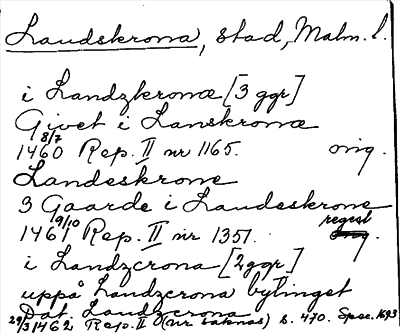 Landskrona, stad, Malm. l.
i Landzkronæ [3 ggr]
Givet i Lanskronæ
8/7
1460 Rep. II nr 1165. orig.
Landeskrone
3 Gaarde i Landeskrone
19/10 regest
1461 Rep. II nr 1351. orig.
i Landzcrona [2 ggr]
uppå Landzcrona bytinget
Dat. Landzcrona
29/3 1462 Rep. II (nr saknas) s. 470. Spec. 1693